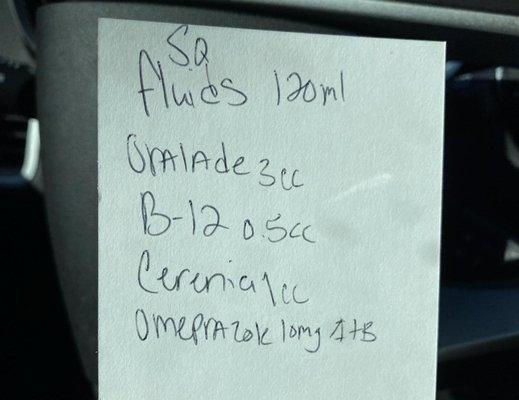 SQ
fluids 120ml
Oralade 3cc
B-12 0.5cc
Cerenia 1cc
Omeprazole 10mg 1tB